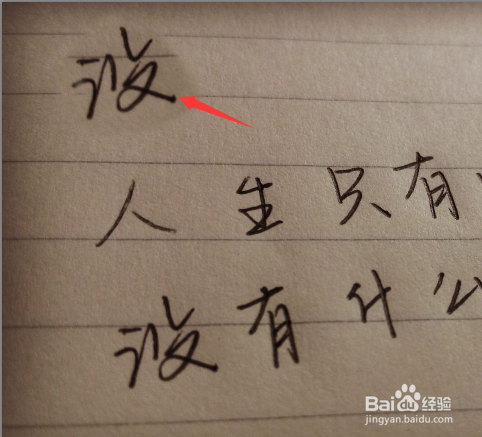 没
人生只有
没有什么
Baidu经验
jingyan.baidu.com